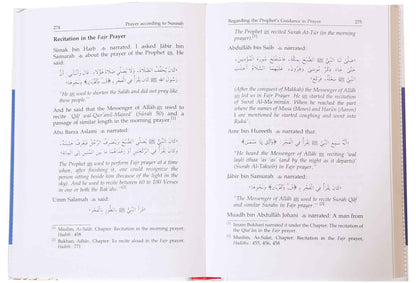 274
Prayer according to Sunnah
Recitation in the Fajr Prayer
Simak bin Harb narrated: I asked Jâbir bin
Samurah about the prayer of the Prophet ﷺ. He
said:
"He ﷺ used to shorten the Salâh and did not pray like
these people."
And he said that the Messenger of Allâh ﷺ used to
recite 'Qâf wal-Qur'anil-Majeed' (Sûrah 50) and a
passage of similar length in the morning prayer.[1]
Abu Barza Aslami narrated:
"The Prophet ﷺ used to perform Fajr prayer at a time
when, after finishing it, one could recognize the
person sitting beside him (because of the light in the
sky). And he used to recite between 60 to 100 Verses
in one or both the Rak'ahs."[2]
Umm Salamah said:
قَرَأَ النَّبِيُّ ﷺ بِالطُّورِ بِالْفَجْرِ
[1] Muslim, As-Salât, Chapter: Recitation in the morning prayer,
Hadith: 458
[2] Bukhari, Adhân, Chapter: To recite aloud in the Fajr prayer,
Hadith: 771
Regarding the Prophet's Guidance in Prayer
275
The Prophet ﷺ recited Surah At-Tûr (in the morning
prayer).[1]
Abdullâh bin Saib narrated:
(After the conquest of Makkah) the Messenger of Allâh
ﷺ led us in Fajr Prayer. He started the recitation of
Surat Al-Mu'minun. When he reached the part
where the names of Musa (Moses) and Harûn (Aaron)
are mentioned he started coughing and went into
Ruku'.
Amr bin Hureeth narrated that:
"He heard the Messenger of Allâh ﷺ reciting 'wal
layli thaa 'as 'as' (and by the night as it departs)
(Surah At-Takwîr) in Fajr prayer."
Jâbir bin Samurah narrated:
"The Messenger of Allâh ﷺ used to recite Surah Qâf
and similar Surahs in Fajr prayer."[2]
Muadh bin Abdullâh Johani narrated: A man from
[1] Imam Bukhari narrated it under the Chapter: The recitation of
the Qur'ân in the Fajr prayer.
[2] Muslim, As-Salat, Chapter: Recitation in the Fajr prayer,
Hadiths: 455, 456, 458